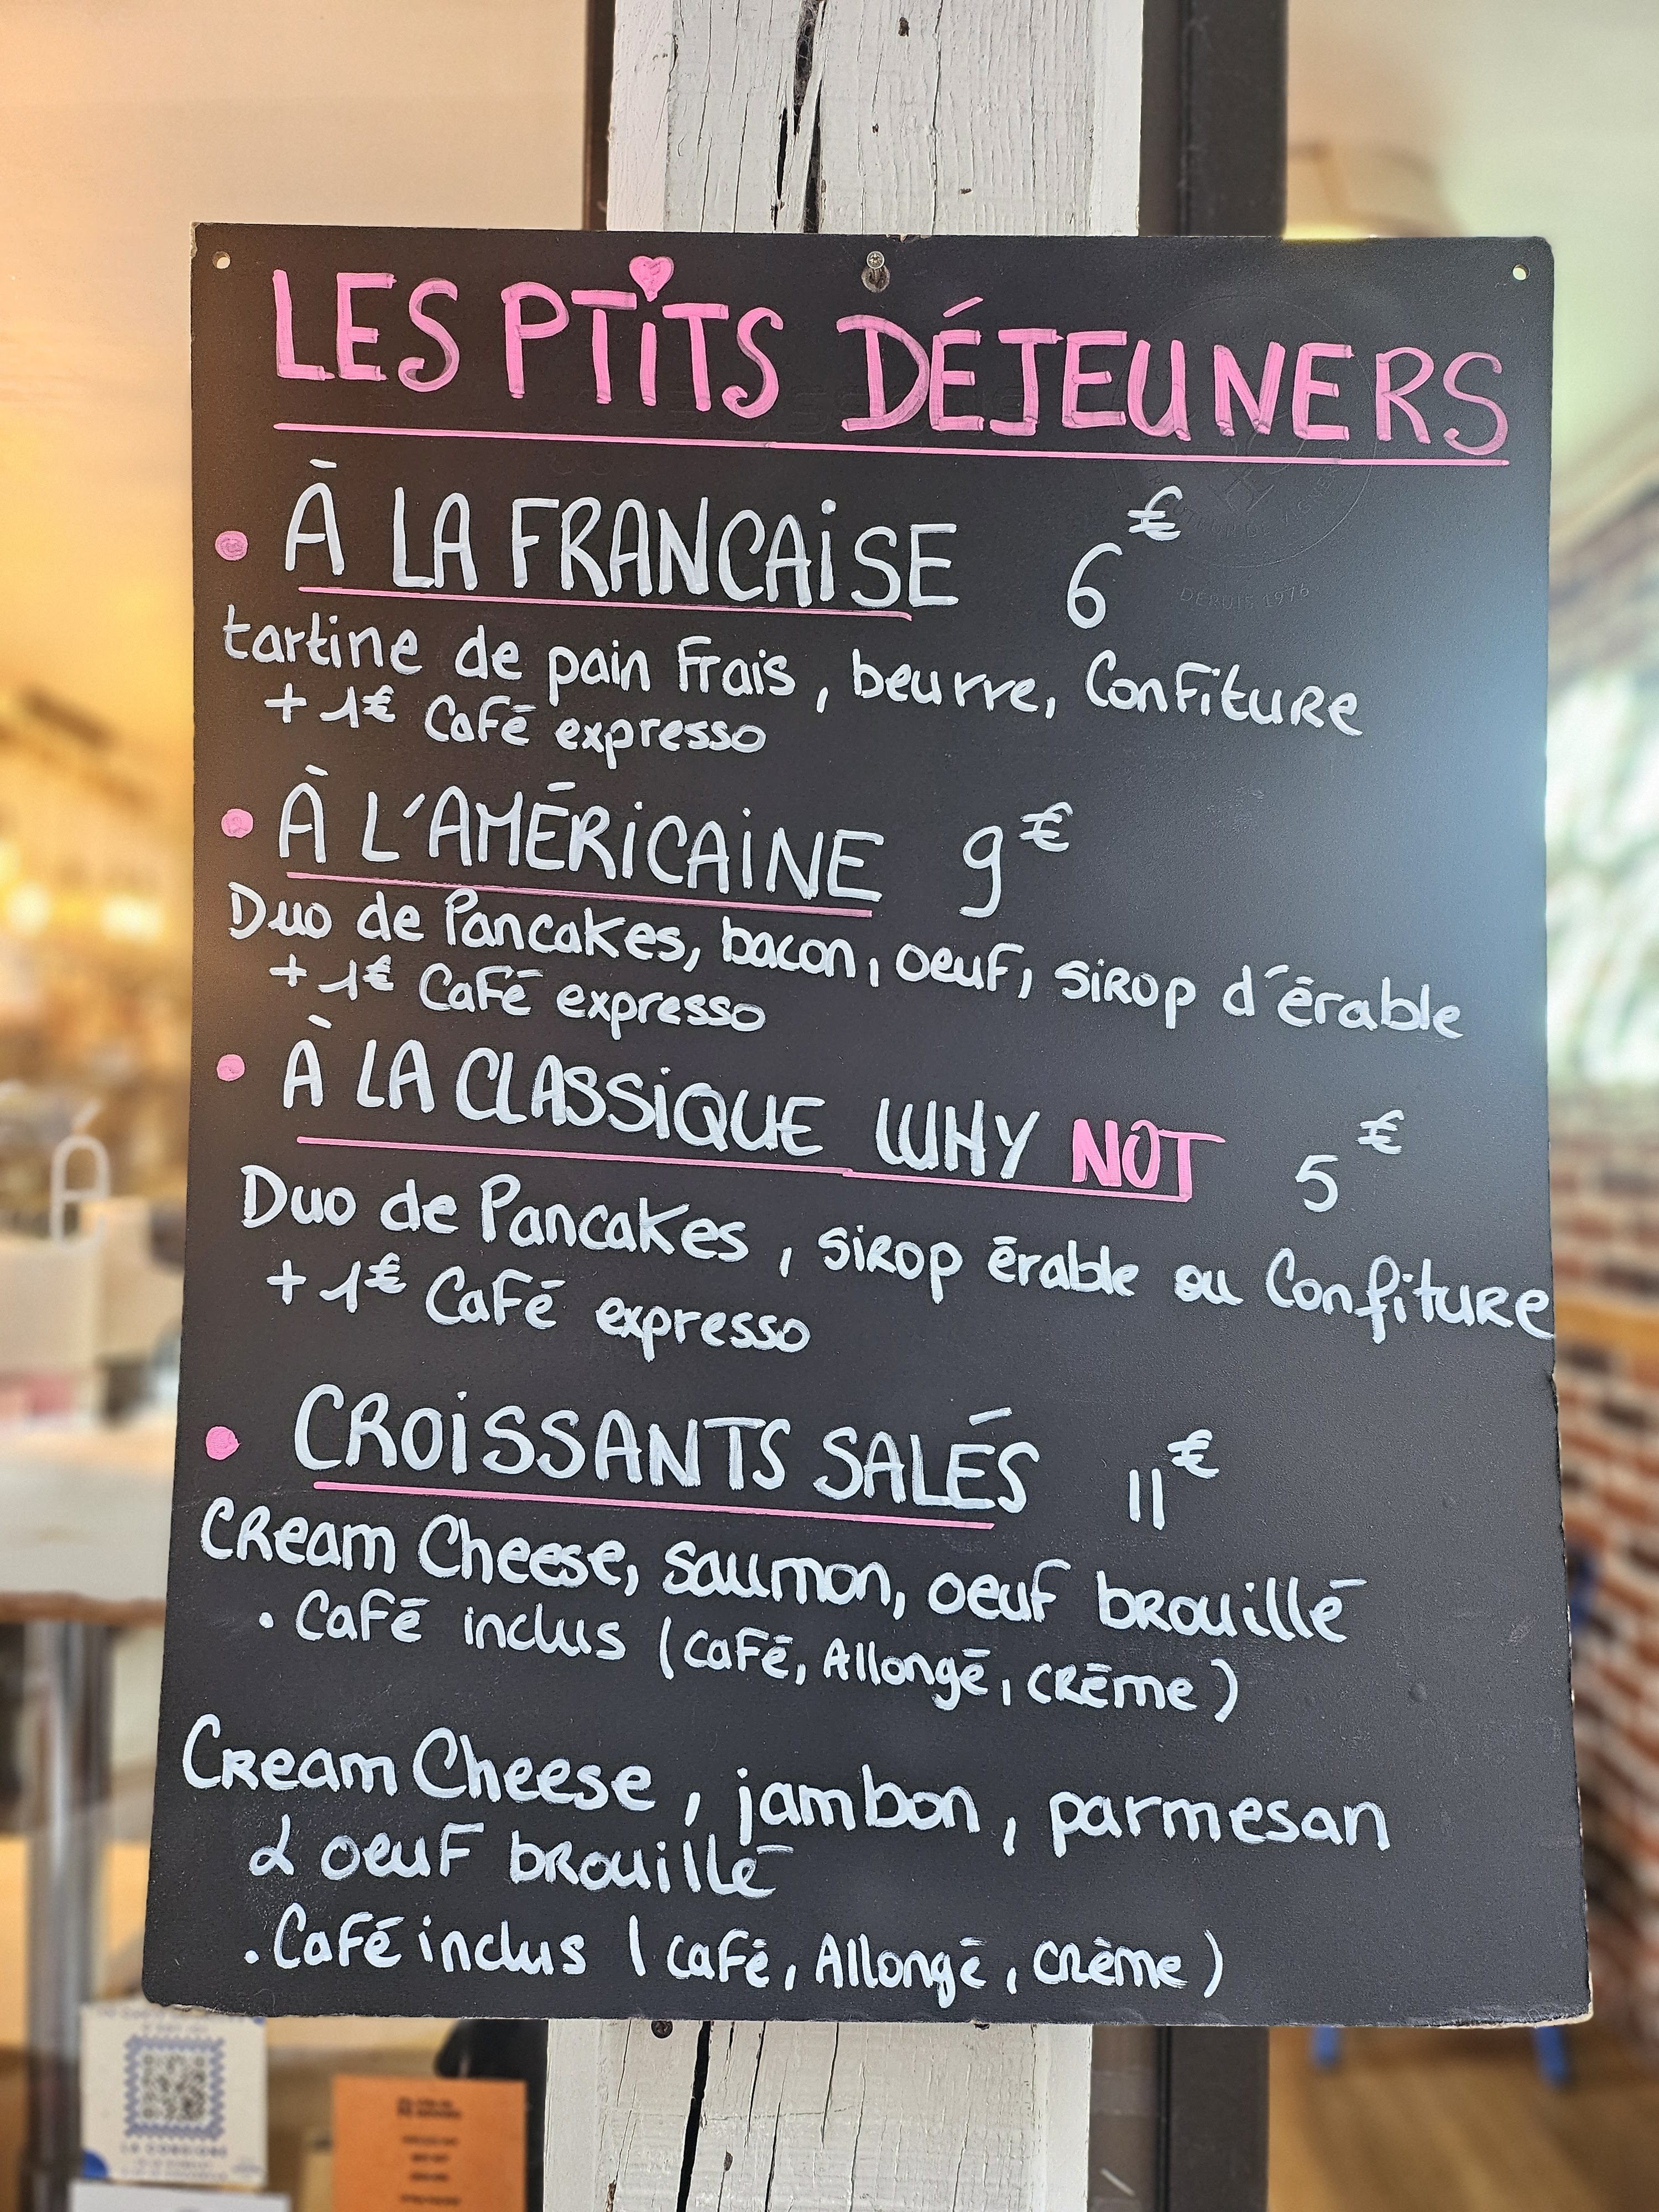 LES PTiTS DÉJEUNERS
• À LA FRANCAiSE 6€
tartine de pain Frais, beurre, Confiture
+ 1€ Café expresso
• À L'AMÉRiCAiNE 9€
Duo de Pancakes, bacon, oeuf, sirop d'érable
+ 1€ Café expresso
• À LA CLASSiQUE WHY NOT 5€
Duo de Pancakes, sirop érable ou Confiture
+ 1€ Café expresso
• CROiSSANTS SALÉS 11€
Cream Cheese, saumon, oeuf brouillé
. Café inclus (Café, Allongé, crème)
Cream Cheese, jambon, parmesan
& oeuf brouillé
. Café inclus (Café, Allongé, crème)
DEPUIS 1976
LA CONSIGNE